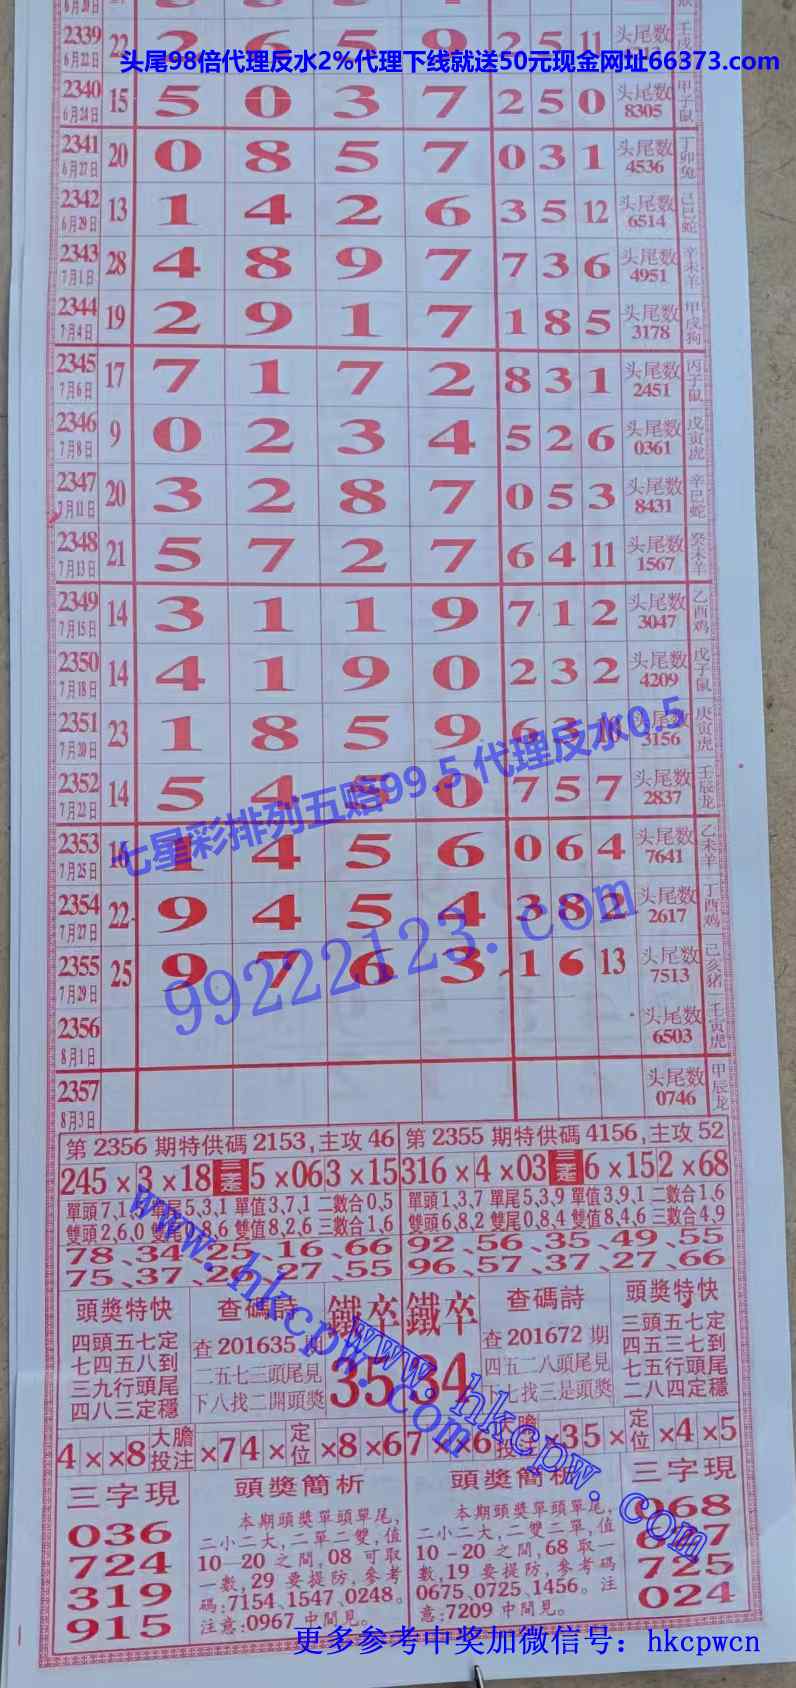 6月20日
2339 22 2 6 5 9 2 5 11 头尾数
6月22日
头尾98倍代理反水2%代理下线就送50元现金网址66373.com
2340 15 5 0 3 7 2 5 0 头尾数 甲子鼠
6月24日 8305
2341 20 0 8 5 7 0 3 1 头尾数 丁卯兔
6月27日 4536
2342 13 1 4 2 6 3 5 12 头尾数 己巳蛇
6月29日 6514
2343 28 4 8 9 7 7 3 6 头尾数 辛未羊
7月1日 4951
2344 19 2 9 1 7 1 8 5 头尾数 甲戌狗
7月4日 3178
2345 17 7 1 7 2 8 3 1 头尾数 丙子鼠
7月6日 2451
2346 9 0 2 3 4 5 2 6 头尾数 戊寅虎
7月8日 0361
2347 20 3 2 8 7 0 5 3 头尾数 辛巳蛇
7月11日 8431
2348 21 5 7 2 7 6 4 11 头尾数 癸未羊
7月13日 1567
2349 14 3 1 1 9 7 1 2 头尾数 乙酉鸡
7月15日 3047
2350 14 4 1 9 0 2 3 2 头尾数 戊子鼠
7月18日 4209
2351 23 1 8 5 9 6 3 头尾数 庚寅虎
7月20日 3156
2352 14 5 4 0 7 5 7 头尾数 壬辰龙
7月22日 2837
七星彩排列五赔99.5 代理反水0.5
2353 16 1 4 5 6 0 6 4 头尾数 乙未羊
7月25日 7641
2354 22 9 4 5 4 3 8 2 头尾数 丁酉鸡
7月27日 2617
99222123.com
2355 25 9 7 6 3 1 6 13 头尾数 己亥猪
7月29日 7513
2356 头尾数 壬寅虎
8月1日 6503
2357 头尾数 甲辰龙
8月3日 0746
第2356期特供碼2153,主攻46 第2355期特供碼4156,主攻52
245×3×18 三定 5×063×15 316×4×03 三定 6×152×68
單頭7,1 單尾5,3,1 單值3,7,1 二數合0,5 單頭1,3,7 單尾5,3,9 單值3,9,1 二數合1,6
雙頭2,6,0 雙尾0,8,6 雙值8,2,6 三數合1,6 雙頭6,8,2 雙尾0,8,4 雙值8,4,6 三數合4,9
78、34、25、16、66 92、56、35、49、55
75、37、26、27、55 96、57、37、27、66
www.hkcpw.com
www.hkcpw.com
頭獎特快
四頭五七定
七四五八到
三九行頭尾
四八三定穩
查碼詩
查201635
二五七三頭尾見
下八找二開頭獎
鐵卒
35
鐵卒
34
查碼詩
查201672期
四五二八頭尾見
七找三是頭獎
頭獎特快
三頭五七定
四五三七到
七五行頭尾
二八四定穩
4××8 大膽投注 ×74× 定位 ×8×6 7××6 大膽投注 ×35× 定位 ×4×5
三字現
036
724
319
915
頭獎簡析
本期頭獎單頭單尾,
二小二大,二單二雙,值
10—20之間,08可取
一數,29要提防,參考
碼:7154、1547、0248。
注意:0967中間見。
頭獎簡析
本期頭獎單頭單尾,
二小二大,二雙二單,值
10-20之間,68取一
數,19要提防,參考碼
0675、0725、1456。注
意:7209中間見。
三字現
068
725
024
更多参考中奖加微信号：hkcpwcn